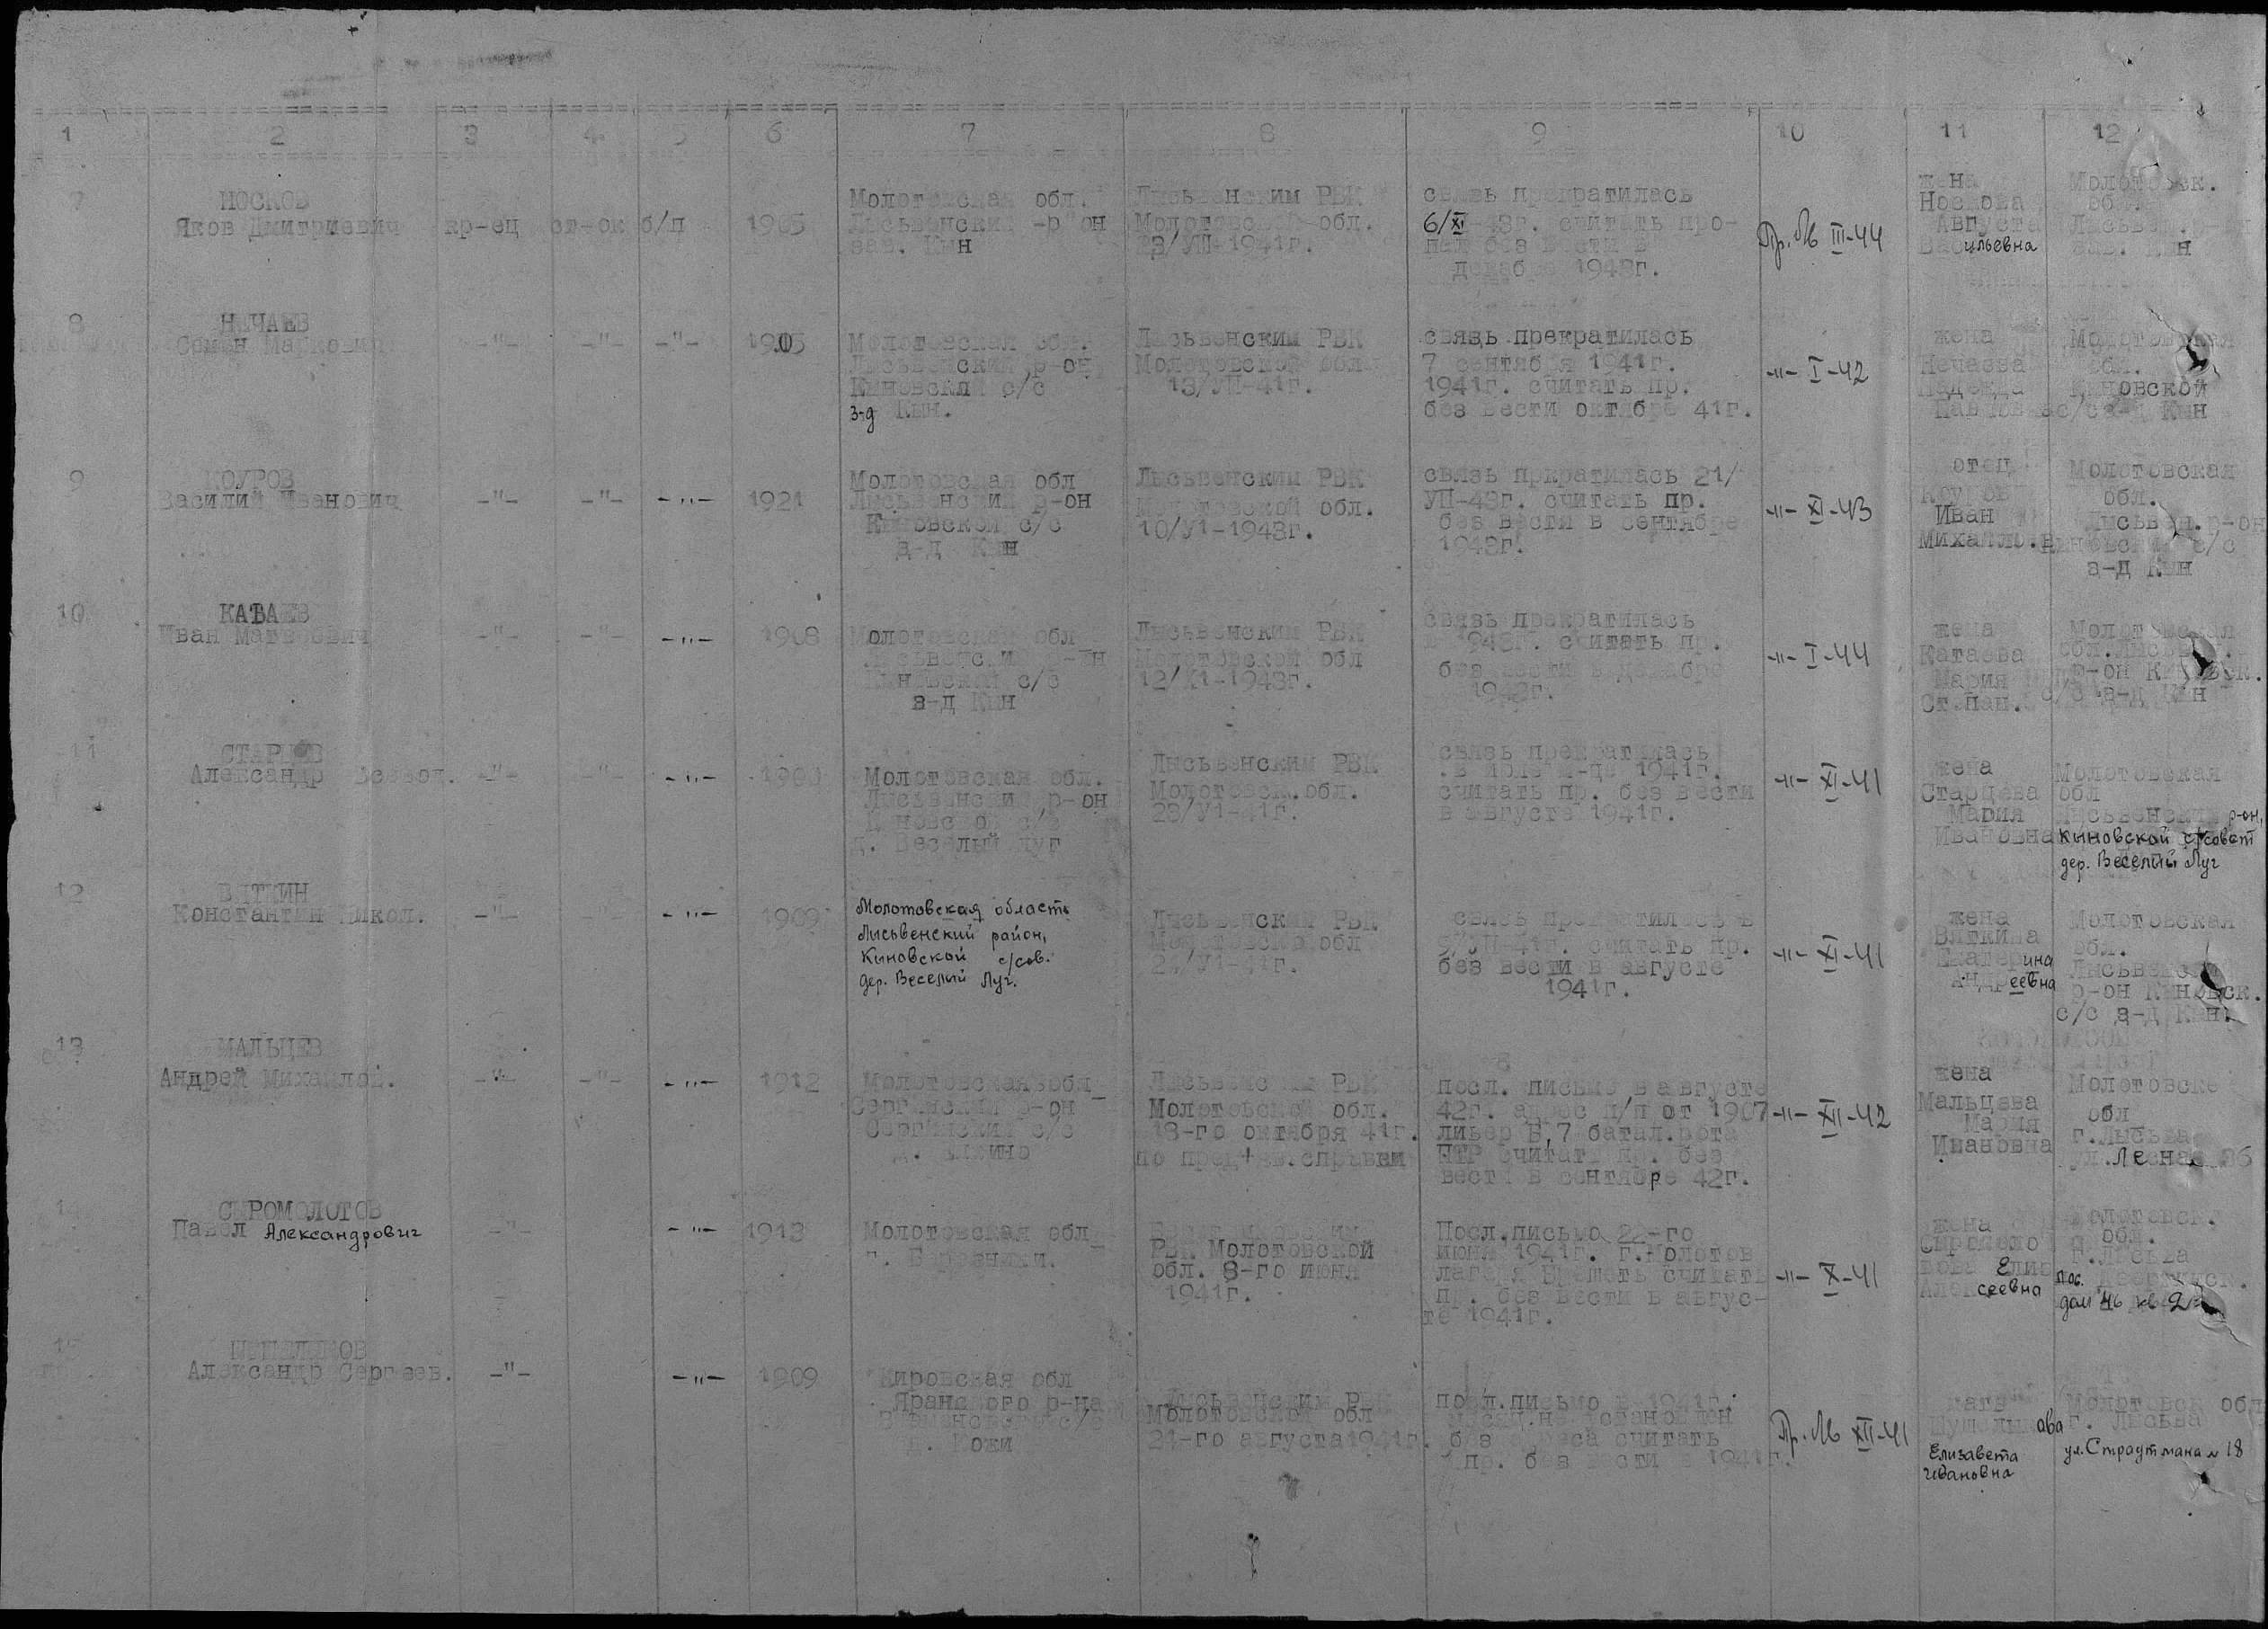 1 2 3 4 5 6 7 8 9 10 11 12
7
НОСКОВ
Яков Дмитриевич
кр-ец
ст-ок
б/п
1905
Молотовская обл.
Лысьвенский -р он
зав. Кын
Лысьвенским РВК
Молотовской обл.
3/УШ-1941г.
связь прекратилась
6/XI-43г. считать про-
пал без вести в
декабре 1943г.
Пр. №б III-44
жена
Носкова
Августа
Васильевна
Молотовск.
обл.
Лысьвен. р-н
зав. Кын
8
НЕЧАЕВ
Семен Маркович
-"-
-"-
-"-
Молотовская обл.
Лысьвенский р-он
Кыновской с/с
з-д Кын.
Лысьвенским РВК
Молотовской обл
связь прекратилась
7 сентября 1941г.
1941г. считать пр.
без вести октябре 41г.
-"- I-42
жена
Нечаева
Надежда
Молотовская
обл.
Кыновской
с/с з-д Кын
9
КОУРОВ
Василий Иванович
-"-
-"-
-"-
1921
Молотовская обл
Лысьвенский р-он
Кыновской с/с
з-д Кын
Лысьвенским РВК
Молотовской обл.
10/У1-1943г.
связь пркратилась 21/
УП-43г. считать пр.
без вести в сентябре
1943г.
-"- XI-43
отец
Коуров
Иван
Михайлов.
Молотовская
обл.
Лысьвен. р-он
Кыновский с/с
з-д Кын
10
КАТАЕВ
Иван Матвеевич
-"-
-"-
-"-
1908
Молотовская обл
Лысьвенский р-он
Кыновской с/с
з-д Кын
Лысьвенским РВК
Молотовской обл
12/X1-1943г.
связь прекратилась
1943г. считать пр.
без вести в декабре
1943г.
-"- I-44
жена
Катаева
Мария
Степан.
Молотовская
обл. Лысьвен.
р-он Кыновск.
с/с з-д Кын
11
СТАРЦЕВ
Александр Всевол.
-"-
-"-
-"-
Молотовская обл.
Лысьвенский р-он
Кыновской с/с
д. Веселый луг
Лысьвенским РВК
Молотовск. обл.
23/У1-41г.
связь прекратилась
в июле м-це 1941г.
считать пр. без вести
в августе 1941г.
-"- XI-41
жена
Старцева
Мария
Ивановна
Молотовская
обл
Лысьвенский р-он,
Кыновской с/совет
дер. Веселый Луг
12
ВЯТКИН
Константин Никол.
-"-
-"-
-"-
1909
Молотовская область
Лысьвенский район,
Кыновской с/сов.
дер. Веселый Луг.
Лысьвенским РВК
Молотовской обл
24/У1-41г.
связь прекратилась в
считать пр.
без вести в августе
1941г.
-"- XI-41
жена
Вяткина
Екатерина
Андреевна
Молотовская
обл.
Лысьвенский
р-он Кыновск.
с/с з-д Кын.
13
МАЛЬЦЕВ
Андрей Михайлов.
-"-
-"-
-"-
1912
Молотовская обл
Сергинский р-он
Сергинский с/с
Лысьвенским РВК
Молотовской обл.
18-го октября 41г.
по пред'яв. справки
посл. письмо в августе
42г. адрес п/п от 1907
литер В, 7 батал. рота
ПТР считать пр. без
вести в сентябре 42г.
-"- XII-42
жена
Мальцева
Мария
Ивановна
Молотовско
обл
г. Лысьва
ул. Лесная 36
14
СЫРОМОЛОТОВ
Павел Александрович
-"-
-"-
1913
Молотовская обл
г. Березники.
РВК Молотовской
обл. 8-го июня
1941г.
Посл. письмо 22-го
июня 1941г. г. Молотов
лагеря Бершеть считать
пр. без вести в авгус-
те 1941г.
-"- X-41
жена
Сыромоло
това Елис
Алексеевна
Молотовск.
обл.
г. Лысьва
пос.
дом 46 кв 2
15
Александр Сергеев.
-"-
-"-
1909
Кировская обл
Яранского р-на
Лысьвенским РВК
Молотовской обл
21-го августа 1941г.
посл. письмо в 1941г.
месяц не установлен
без адреса считать
пр. без вести в 1941г.
Пр. №б XII-41
мать
Елизавета
Ивановна
Молотовск обл
г. Лысьва
ул. Страутмана № 18